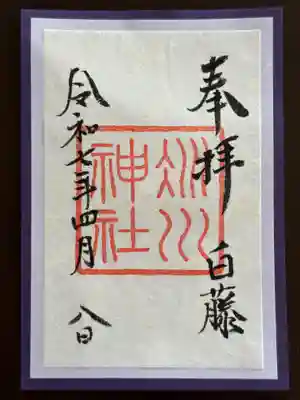 奉拝 白藤
氷川
神社
令和七年四月 八日